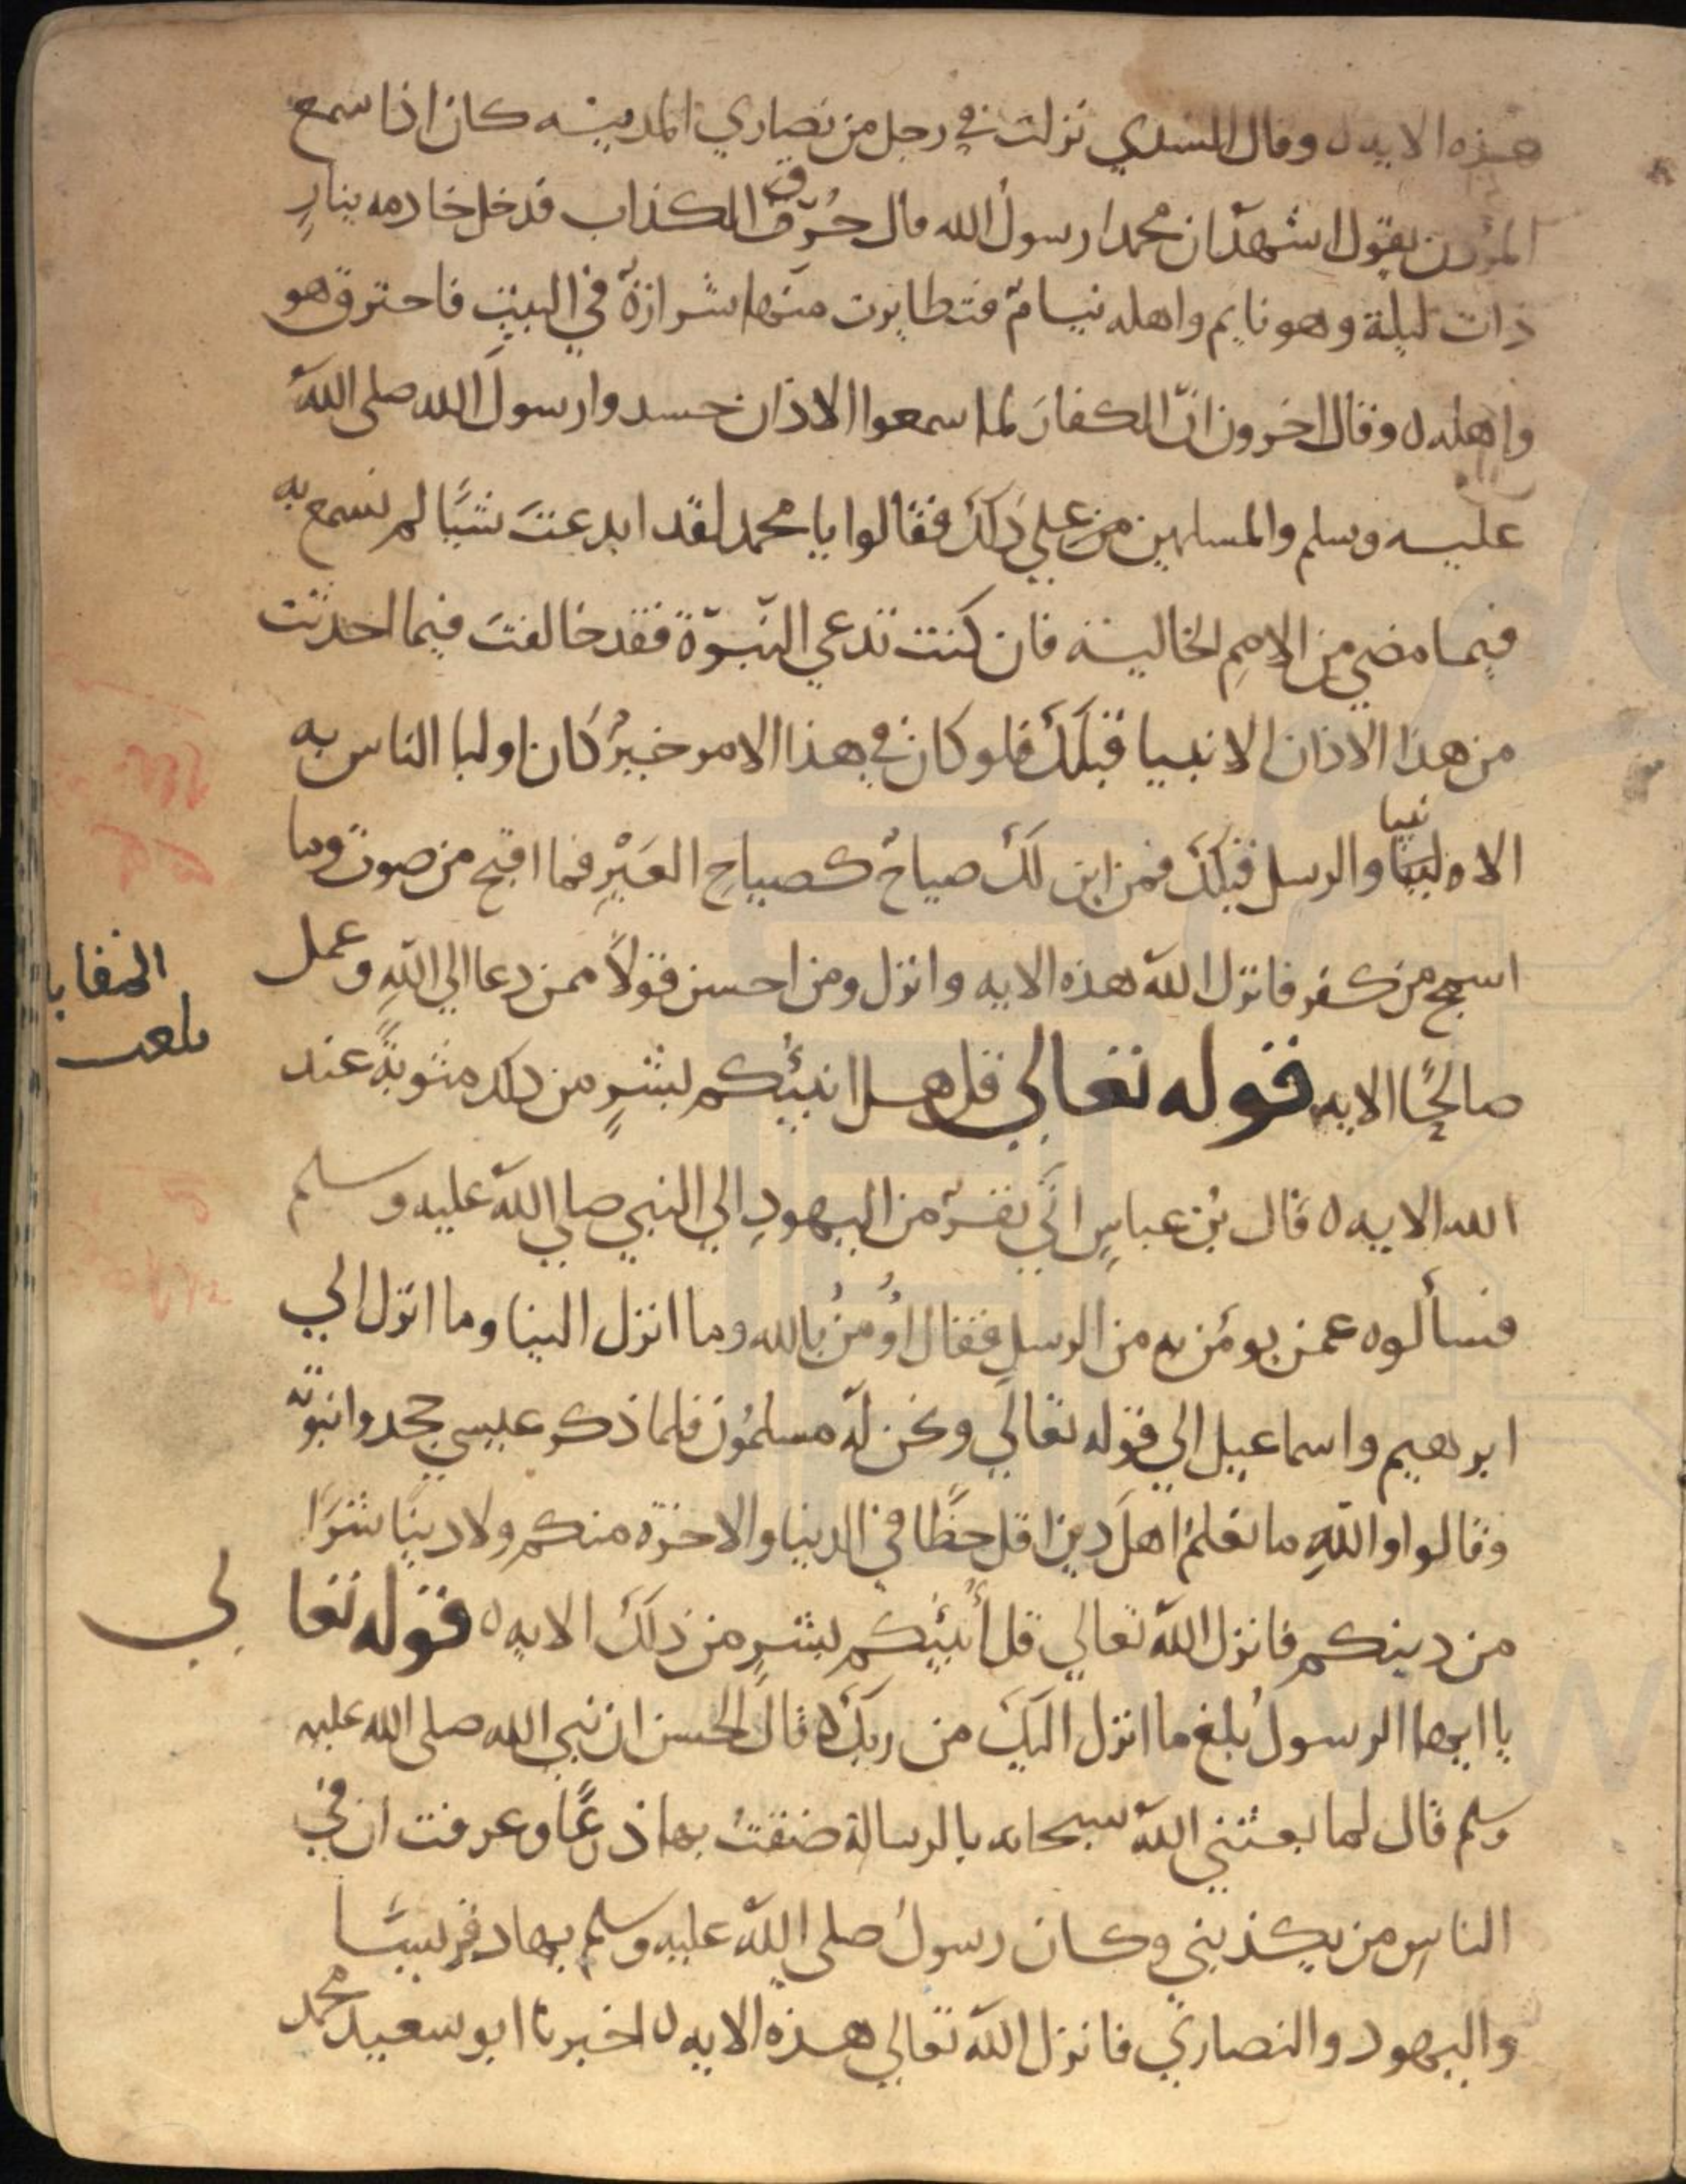 هذه الايه ه وقال السدي نزلت في رجل من نصاري المدينه كان اذا سمع
المؤذن يقول اشهد ان محمدا رسول الله قال حُرّق الكذاب فدخل خادمه بنارٍ
ذات ليلة وهو نايم واهله نيامٌ فتطايرت منها شرارةٌ في البيت فاحترق هو
واهله ه وقال اخرون انّ الكفارَ لما سمعوا الاذان حسدوا رسولَ الله صلى اللهُ
عليه وسلم والمسلمين من علي ذلك فقالوا يا محمد لقد ابدعتَ شيًا لم نسمع به
فيما مضي من الاممِ الخالية فان كنت تدعي النبوّة فقد خالفتَ فيما احدثت
من هذا الاذان الانبيا قبلَكَ فلو كان في هذا الامر خيرٌ كان اولبا الناس به
الاوليا نبيا والرسل قبلَكَ فمن اين لك صياحٌ كصياحِ العَيْرِ فما اقبح من صوت وما
اسمج من كفر فانزل اللهُ هذه الايه وانزل ومن احسن قولاً ممن دعا الي اللهِ وعمل
صالحًا الايه قوله تعالي قل هل انبئكم بشرٍ من ذلك مثوبةً عند
الله الايه ه قال بن عباسٍ اتي نفرٌ من اليهودِ الي النبي صلي اللهُ عليه وسلم
فسألوه عمن يومَن به من الرسلِ فقال اُومنُ بالله وما انزل الينا وما انزل الي
ابرهيم واسماعيل الي قوله تعالي ونحن لهُ مسلمُون فلما ذكر عيسي جحدوا نبوّته
وقالوا واللهِ ما نعلمُ اهلَ دين اقل حظًا في الدنيا والاخرة منكم ولا دينًا شرًا
من دينكم فانزل اللهُ تعالي قل أنبئكم بشرٍ من ذلك الايه ه قوله تعالي
يا ايها الرسولُ بلغ ما انزل اليك من ربكَ ه قال الحسن ان نبي الله صلى الله عليه
وسلم قال لما بعثني اللهُ سبحانه بالرسالة ضقتُ بها ذرعًا وعرفت ان في
الناس من يكذبني وكان رسولُ صلى اللهُ عليه وسلم يهاد قريشًا
واليهود والنصاري فانزل اللهُ تعالي هذه الايه ه اخبرنا ابو سعيد محمد
بلغت